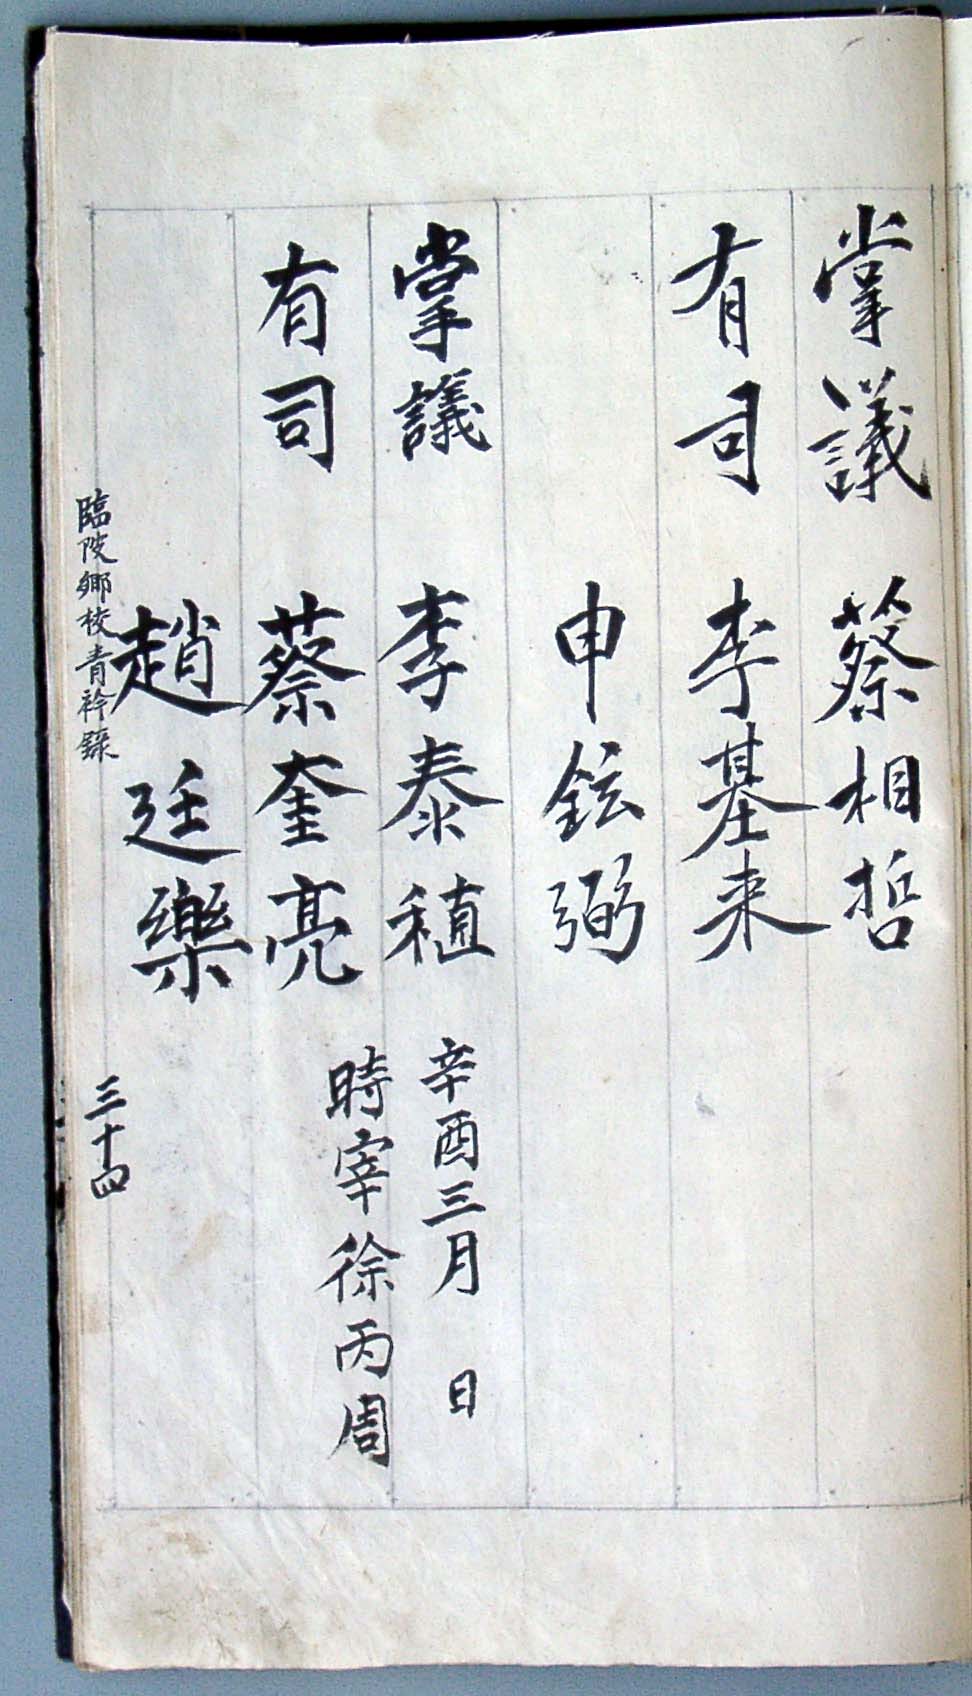 掌議 蔡相哲
有司 李基来
申鉉弼
掌議 李泰稙 辛酉三月 日
時宰徐丙周
有司 蔡奎亮
趙廷樂
臨陂鄉校青衿錄 三十四